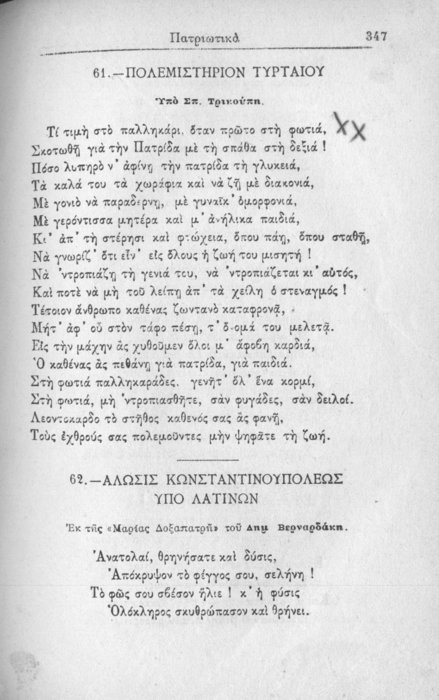 Πατριωτικὰ 347
61.—ΠΟΛΕΜΙΣΤΗΡΙΟΝ ΤΥΡΤΑΙΟΥ
Ὑπὸ Σπ. Τρικούπη.
Τί τιμὴ στὸ παλληκάρι, ὅταν πρῶτο στὴ φωτιά,
Σκοτωθῇ γιὰ τὴν Πατρίδα μὲ τὴ σπάθα στὴ δεξιά !
Πόσο λυπηρὸ ν' ἀφίνῃ τὴν πατρίδα τὴ γλυκειά,
Τὰ καλά του τὰ χωράφια καὶ νὰ ζῇ μὲ διακονιά,
Μὲ γονιὸ νὰ παραδέρνῃ, μὲ γυναῖκ' ὀμορφονιά,
Μὲ γερόντισσα μητέρα καὶ μ' ἀνήλικα παιδιά,
Κι' ἀπ' τὴ στέρησι καὶ φτώχεια, ὅπου πάῃ, ὅπου σταθῇ,
Νὰ γνωρίζ' ὅτι εἶν' εἰς ὅλους ἡ ζωή του μισητή !
Νὰ 'ντροπιάζῃ τὴ γενιά του, νὰ 'ντροπιάζεται κι' αὐτός,
Καὶ ποτὲ νὰ μὴ τοῦ λείπῃ ἀπ' τὰ χείλη ὁ στεναγμός !
Τέτοιον ἄνθρωπο καθένας ζωντανὸ καταφρονᾷ,
Μήτ' ἀφ' οὗ στὸν τάφο πέσῃ, τ' ὄνομά του μελετᾷ.
Εἰς τὴν μάχην ἂς χυθοῦμεν ὅλοι μ' ἄφοβη καρδιά,
Ὁ καθένας ἂς πεθάνῃ γιὰ πατρίδα, γιὰ παιδιά.
Στὴ φωτιά παλληκαράδες. γενῆτ' ὅλ' ἕνα κορμί,
Στὴ φωτιά, μὴ 'ντροπιασθῆτε, σὰν φυγάδες, σὰν δειλοί.
Λεοντόκαρδο τὸ στῆθος καθενός σας ἂς φανῇ,
Τοὺς ἐχθρούς σας πολεμοῦντες μὴν ψηφᾶτε τὴ ζωή.
62.—ΑΛΩΣΙΣ ΚΩΝΣΤΑΝΤΙΝΟΥΠΟΛΕΩΣ
ΥΠΟ ΛΑΤΙΝΩΝ
Ἐκ τῆς «Μαρίας Δοξαπατρῆ» τοῦ Δημ Βερναρδάκη.
Ἀνατολαί, θρηνήσατε καὶ δύσις,
Ἀπόκρυψον τὸ φέγγος σου, σελήνη !
Τὸ φῶς σου σβέσον ἥλιε ! κ' ἡ φύσις
Ὁλόκληρος σκυθρώπασον καὶ θρήνει.